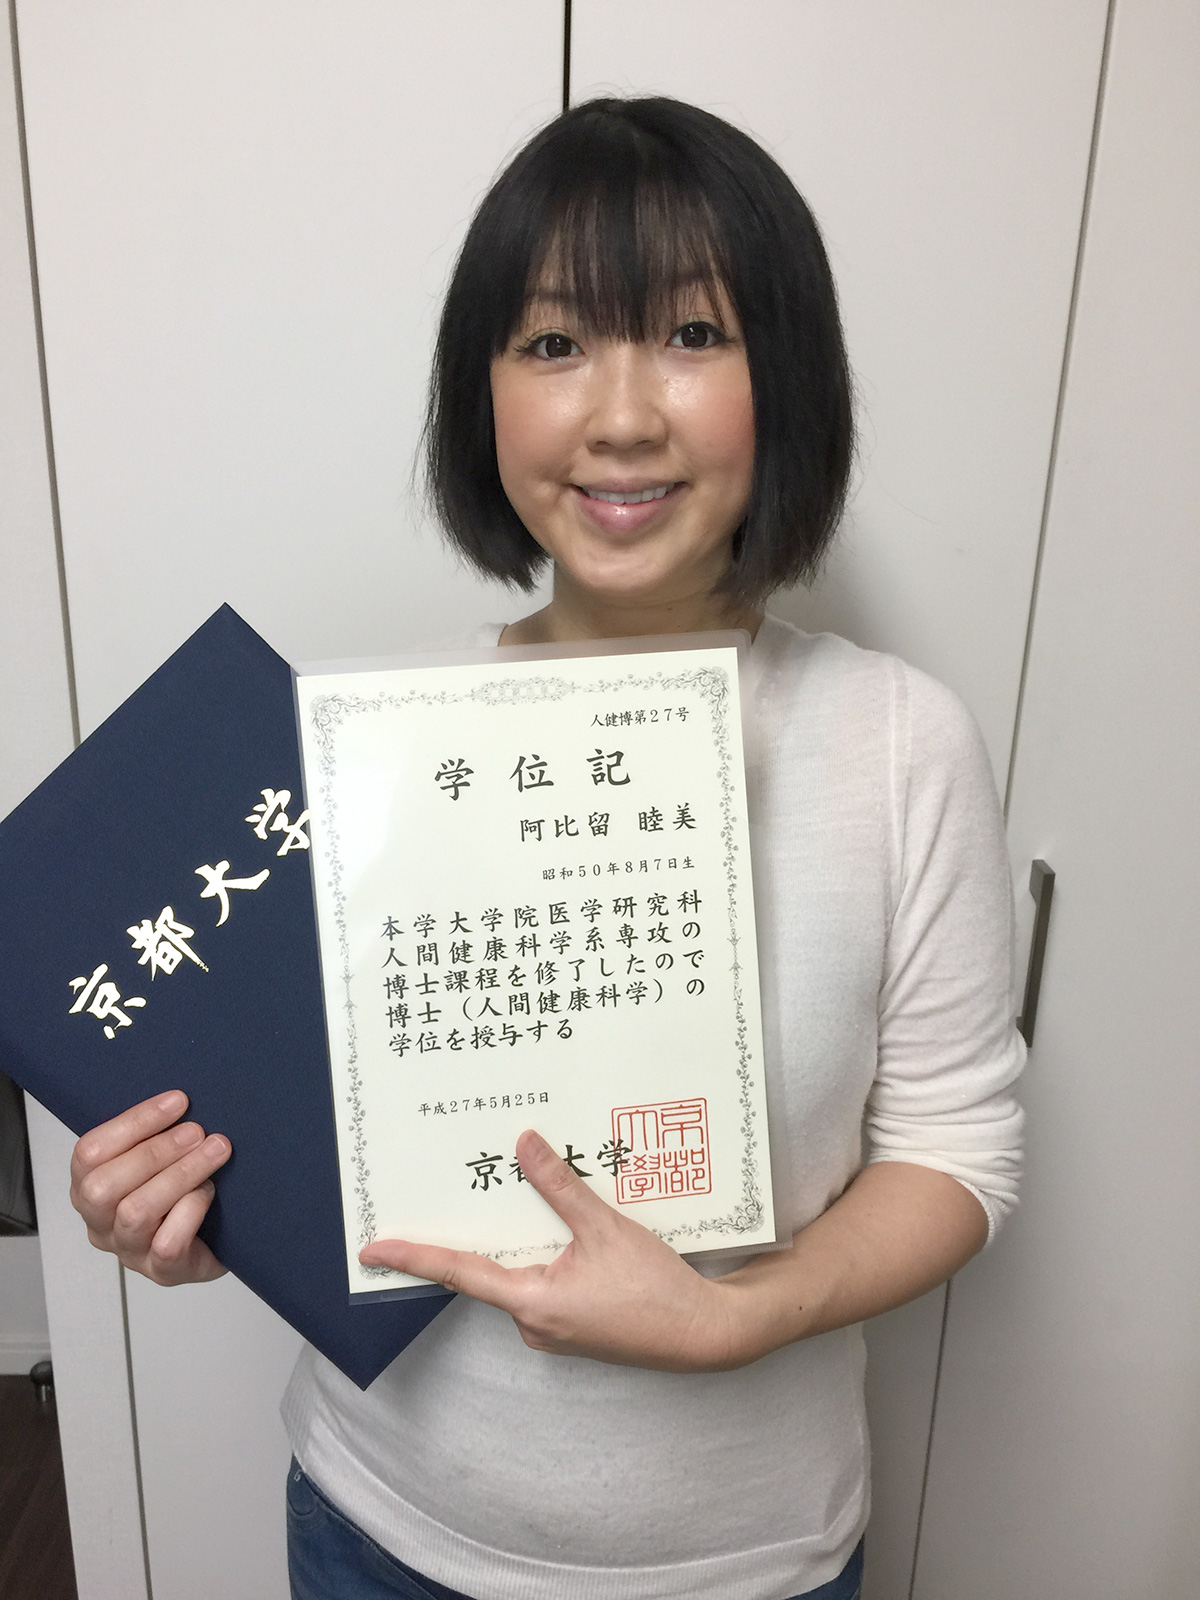 京都大学
人健博第27号
学位記
阿比留 睦美
昭和50年8月7日生
本学大学院医学研究科
人間健康科学系専攻の
博士課程を修了したので
博士（人間健康科学）の
学位を授与する
平成27年5月25日
京都大学
京都
大學